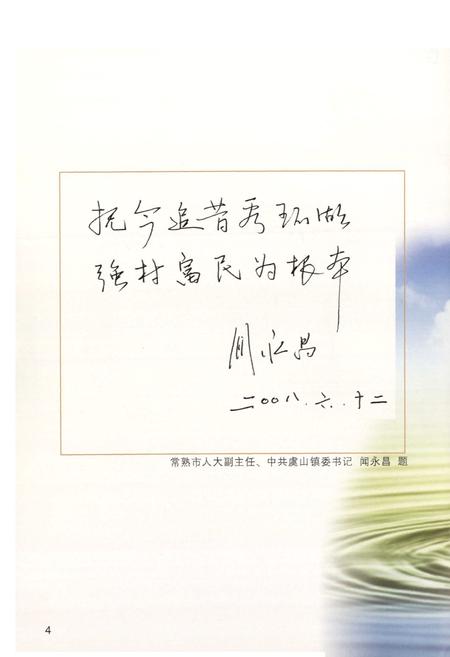 抚今追昔秀环湖
强村富民为根本
闻永昌
二〇〇八.六.十二
常熟市人大副主任、中共虞山镇委书记 闻永昌 题
4